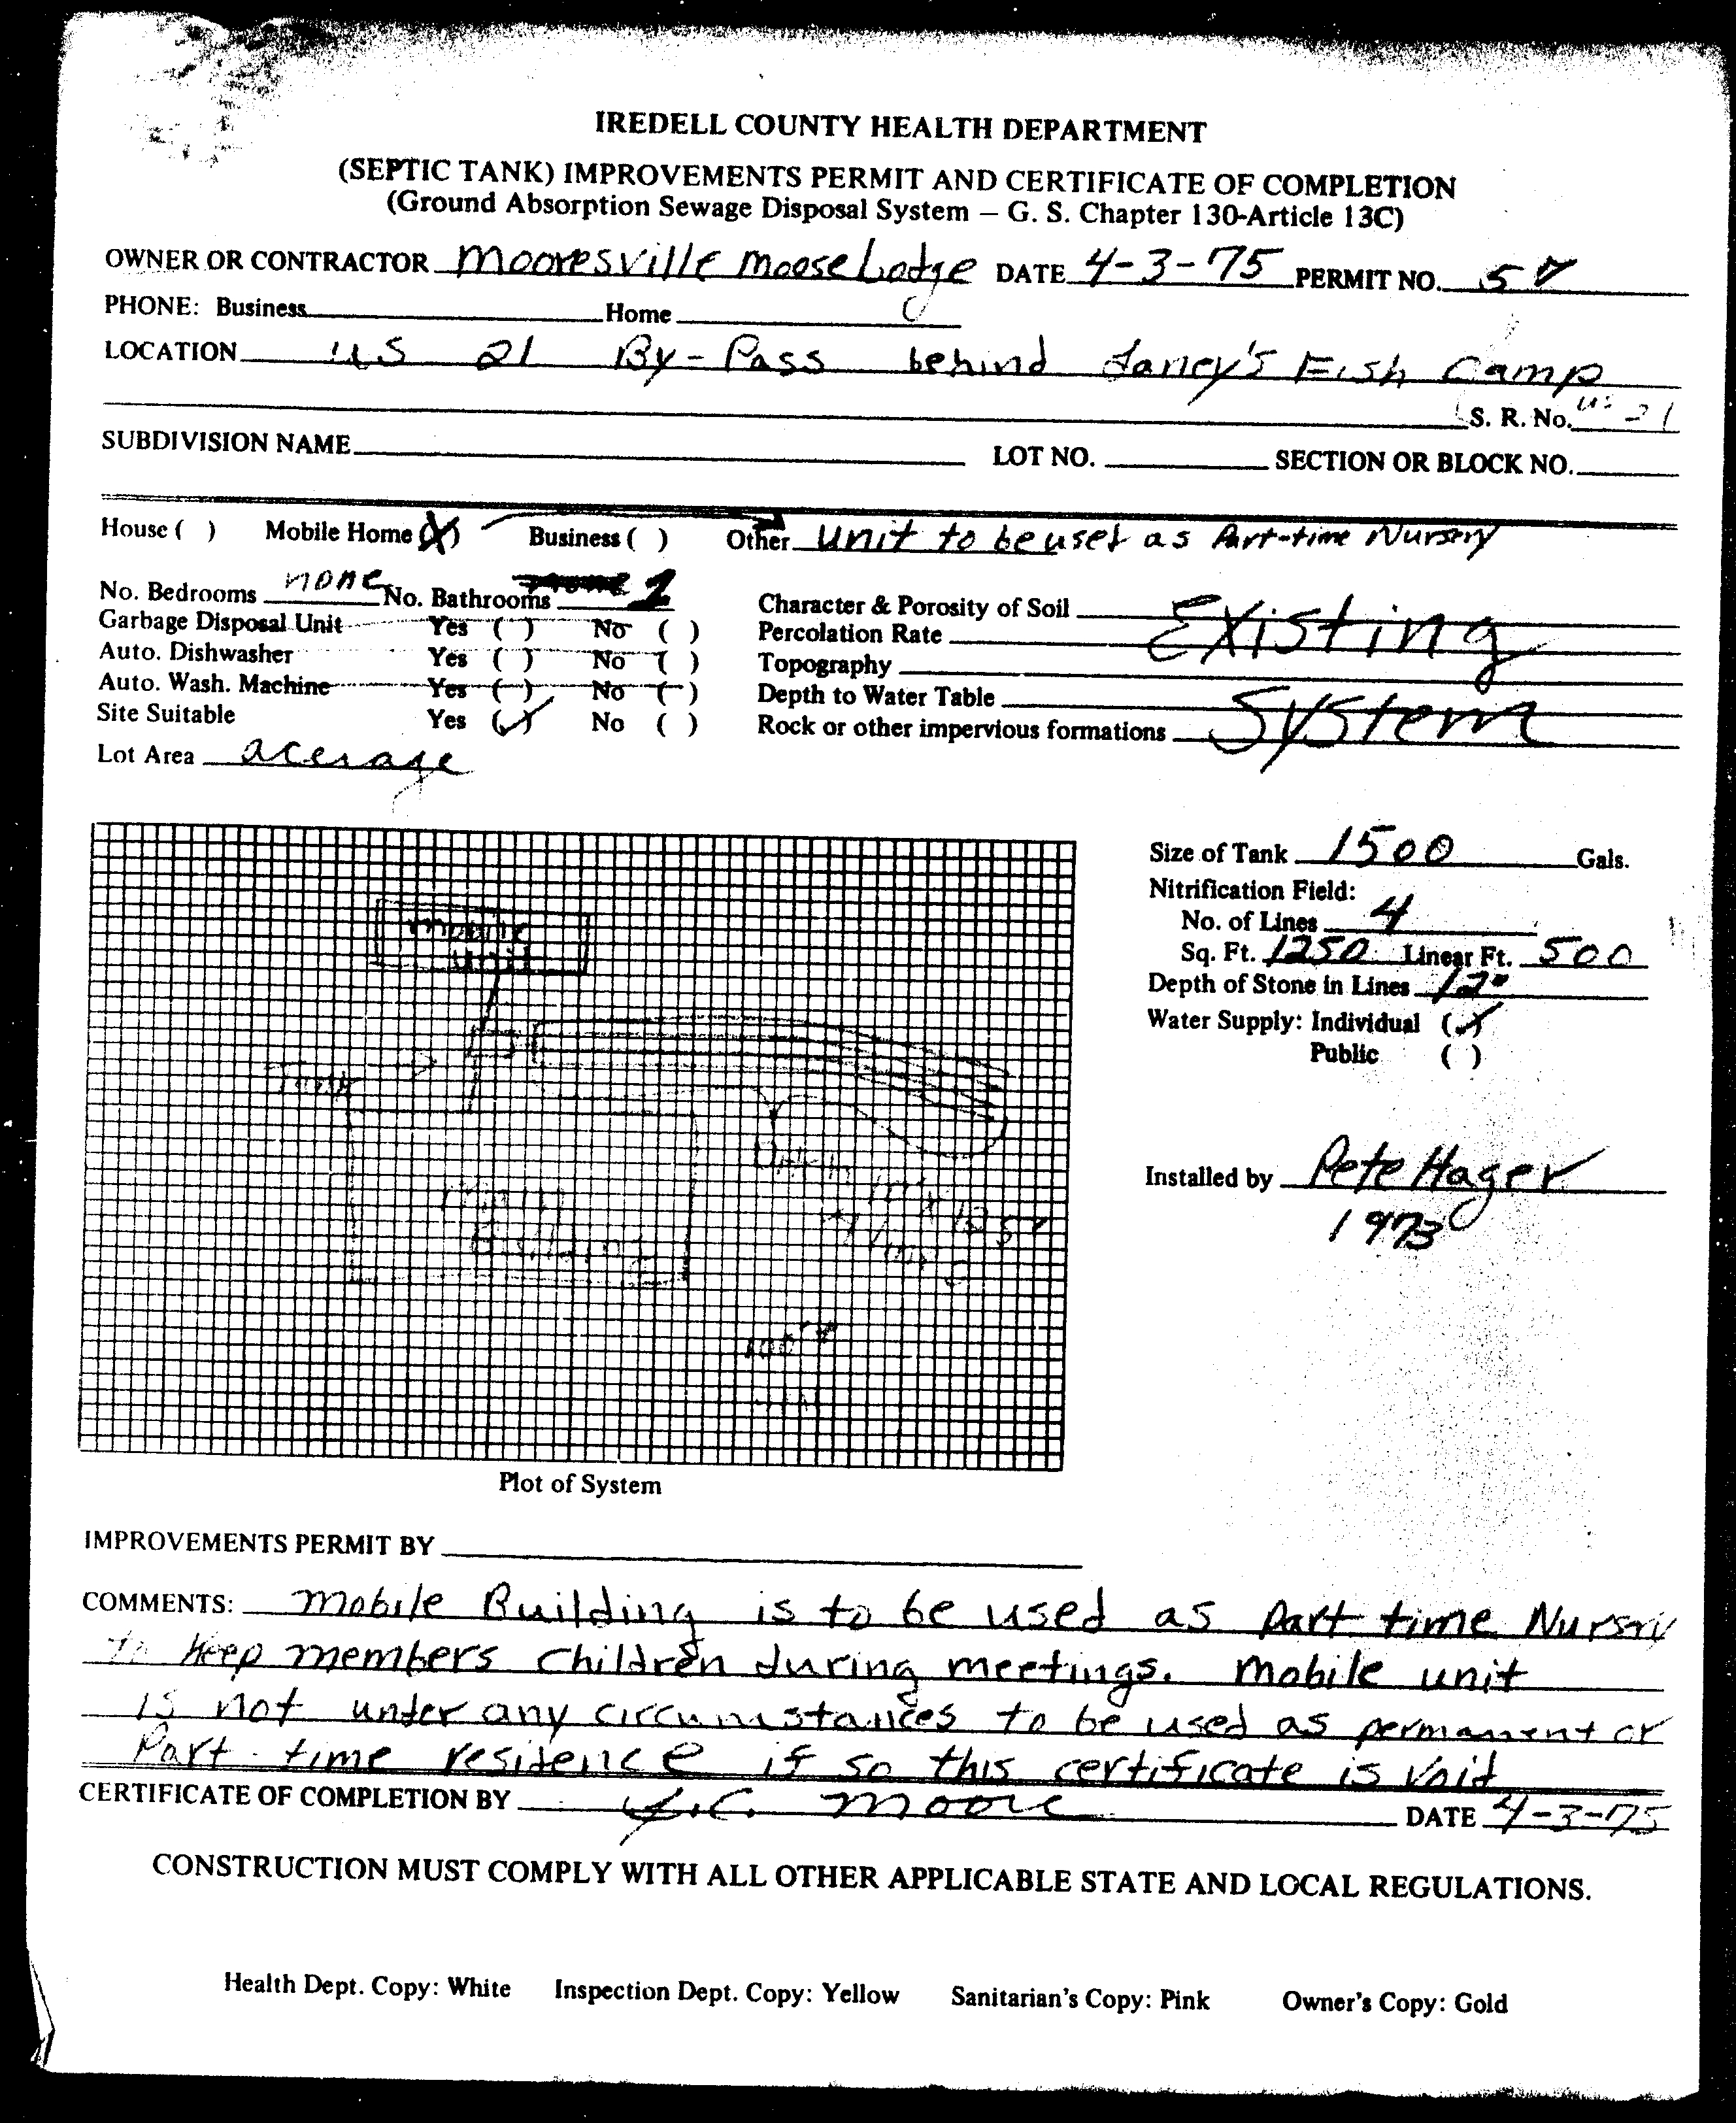 IREDELL COUNTY HEALTH DEPARTMENT
(SEPTIC TANK) IMPROVEMENTS PERMIT AND CERTIFICATE OF COMPLETION
(Ground Absorption Sewage Disposal System – G. S. Chapter 130-Article 13C)
OWNER OR CONTRACTOR Mooresville Moose Lodge DATE 4-3-75 PERMIT NO. 57
PHONE: Business Home
LOCATION US 21 By-Pass behind Janey's Fish Camp
S. R. No. US 21
SUBDIVISION NAME LOT NO. SECTION OR BLOCK NO.
House ( ) Mobile Home (X) Business ( ) Other Unit to be used as Part-time Nursry
No. Bedrooms none No. Bathrooms 2
Character & Porosity of Soil Existing
Garbage Disposal Unit Yes ( ) No ( )
Percolation Rate
Auto. Dishwasher Yes ( ) No ( )
Topography
Auto. Wash. Machine Yes ( ) No ( )
Depth to Water Table System
Site Suitable Yes (✓) No ( )
Rock or other impervious formations
Lot Area acerage
Size of Tank 1500 Gals.
Nitrification Field:
No. of Lines 4
Sq. Ft. 1250 Linear Ft. 500
Depth of Stone in Lines 12"
Water Supply: Individual (✓)
Public ( )
Installed by Pete Hager
1973
mobile
unit
Tank
main
Building
100'
Plot of System
IMPROVEMENTS PERMIT BY
COMMENTS: Mobile Building is to be used as part time Nursry
to keep members children during meetings. Mobile unit
is not under any circumstances to be used as permanent or
Part-time residence if so this certificate is Void
CERTIFICATE OF COMPLETION BY J.C. Moore DATE 4-3-75
CONSTRUCTION MUST COMPLY WITH ALL OTHER APPLICABLE STATE AND LOCAL REGULATIONS.
Health Dept. Copy: White Inspection Dept. Copy: Yellow Sanitarian's Copy: Pink Owner's Copy: Gold